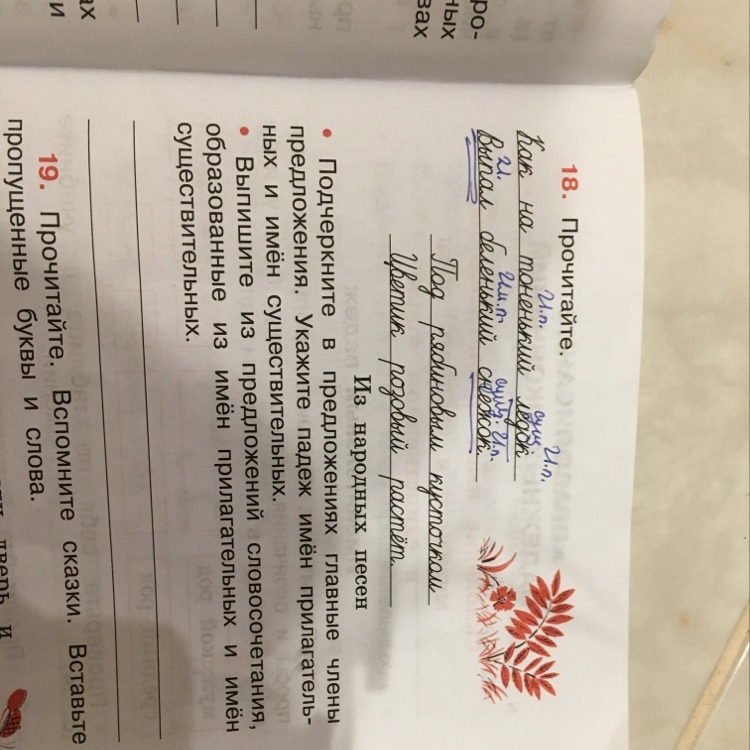 ро-
ных
вах
ах
и
18. Прочитайте.
И.п. сущ И.п.
Как на тоненький ледок
гл. И.п. сущ. И.п.
Выпал беленький снежок.
Под рябиновым кусточком
Цветик розовый растёт.
Из народных песен
• Подчеркните в предложениях главные члены
предложения. Укажите падеж имён прилагатель-
ных и имён существительных.
• Выпишите из предложений словосочетания,
образованные из имён прилагательных и имён
существительных.
19. Прочитайте. Вспомните сказки. Вставьте
пропущенные буквы и слова.
дверь и